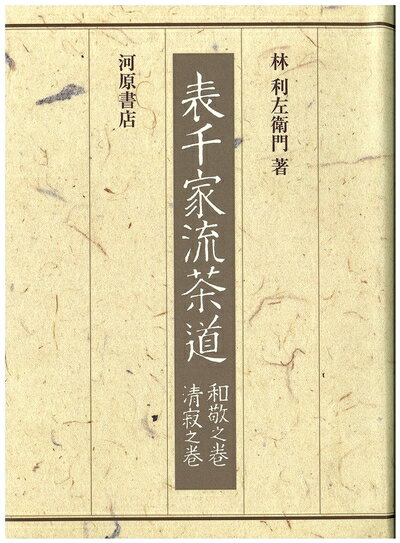 林 利左衛門 著
表千家流茶道
和敬之巻
清寂之巻
河原書店